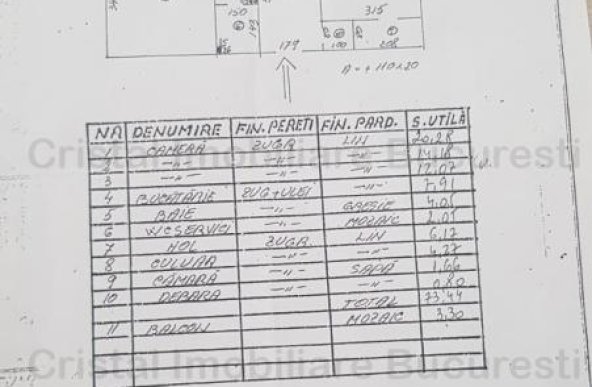 150
315
179
100
208
NR DENUMIRE FIN.PEREȚI FIN. PARD. S.UTILĂ
1 CAMERA ZUGR LIN 20,28
2 -"- -"- -"- 14,18
3 -"- -"- -"- 12,07
4 BUCĂTĂRIE ZUG+ULEI -"- 7,91
5 BAIE -"- GRESIE 4,05
6 WC SERVICI -"- MOZAIC 2,01
7 HOL ZUGR. LIN 6,17
8 CULOAR -"- -"- 4,27
9 CĂMARĂ -"- SAPĂ 1,66
10 DEBARA -"- -"- 0,80
TOTAL 73,44
11 BALCON MOZAIC 3,30
Cristal Imobiliare Bucuresti
Cristal Imobiliare Bucuresti